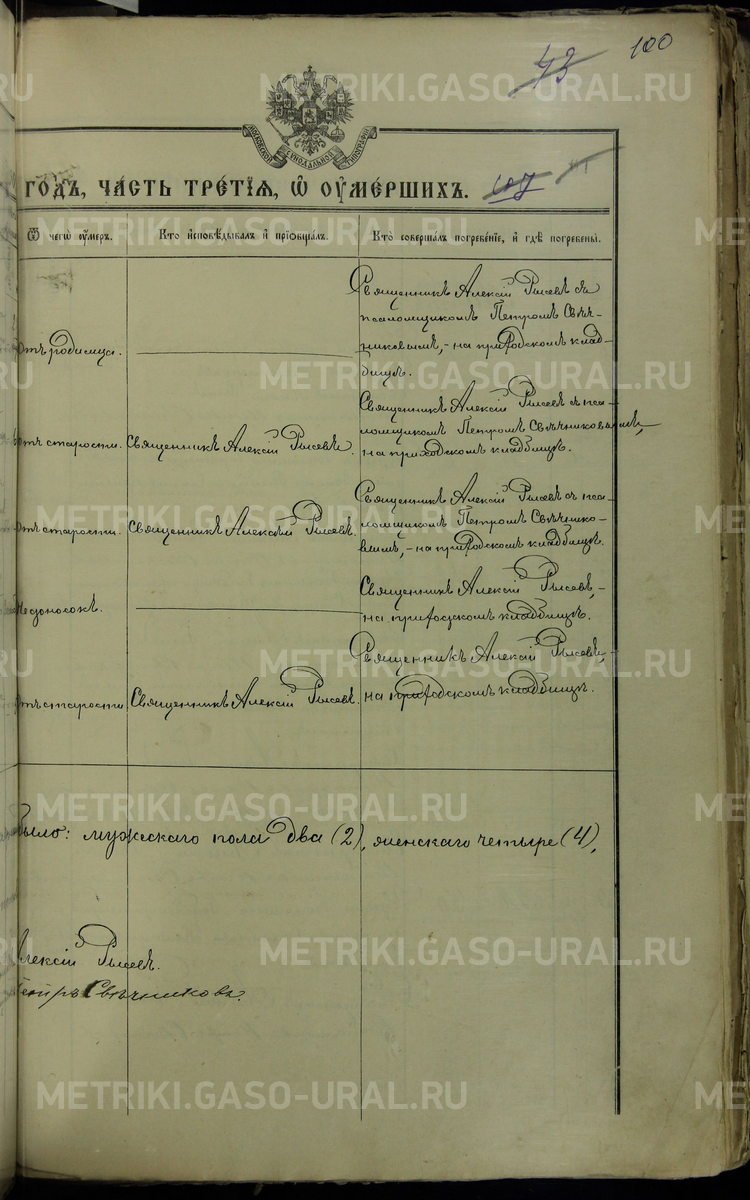 100
43
107
МОСКОВСКОЙ СѴНОДАЛЬНОЙ ТИПОГРАФІИ
ГОДЪ, ЧАСТЬ ТРЕТІЯ, Ѡ ОУМЕРШИХЪ.
Ѿ чегѡ оумеръ.
Кто исповѣдывалъ и пріобщалъ.
Кто совершалъ погребеніе, и гдѣ погребены.
Отъ родимца.
Священникъ Алексій Рысевъ съ
псаломщикомъ Петромъ Свѣч-
никовымъ, - на приходскомъ клад-
бищѣ.
Отъ старости.
Священникъ Алексій Рысевъ.
Священникъ Алексій Рысевъ съ пса-
ломщикомъ Петромъ Свѣчниковымъ,
на приходскомъ кладбищѣ.
Отъ старости.
Священникъ Алексѣй Рысевъ.
Священникъ Алексій Рысевъ съ пса-
ломщикомъ Петромъ Свѣчнико-
вымъ, - на приходскомъ кладбищѣ.
Недоносокъ.
Священникъ Алексій Рысевъ, -
на приходскомъ кладбищѣ.
Отъ старости
Священникъ Алексій Рысевъ.
Священникъ Алексій Рысевъ, -
на приходскомъ кладбищѣ.
было: мужескаго пола два (2), женскаго четыре (4),
Алексій Рысевъ.
Петръ Свѣчниковъ.
METRIKI.GASO-URAL.RU